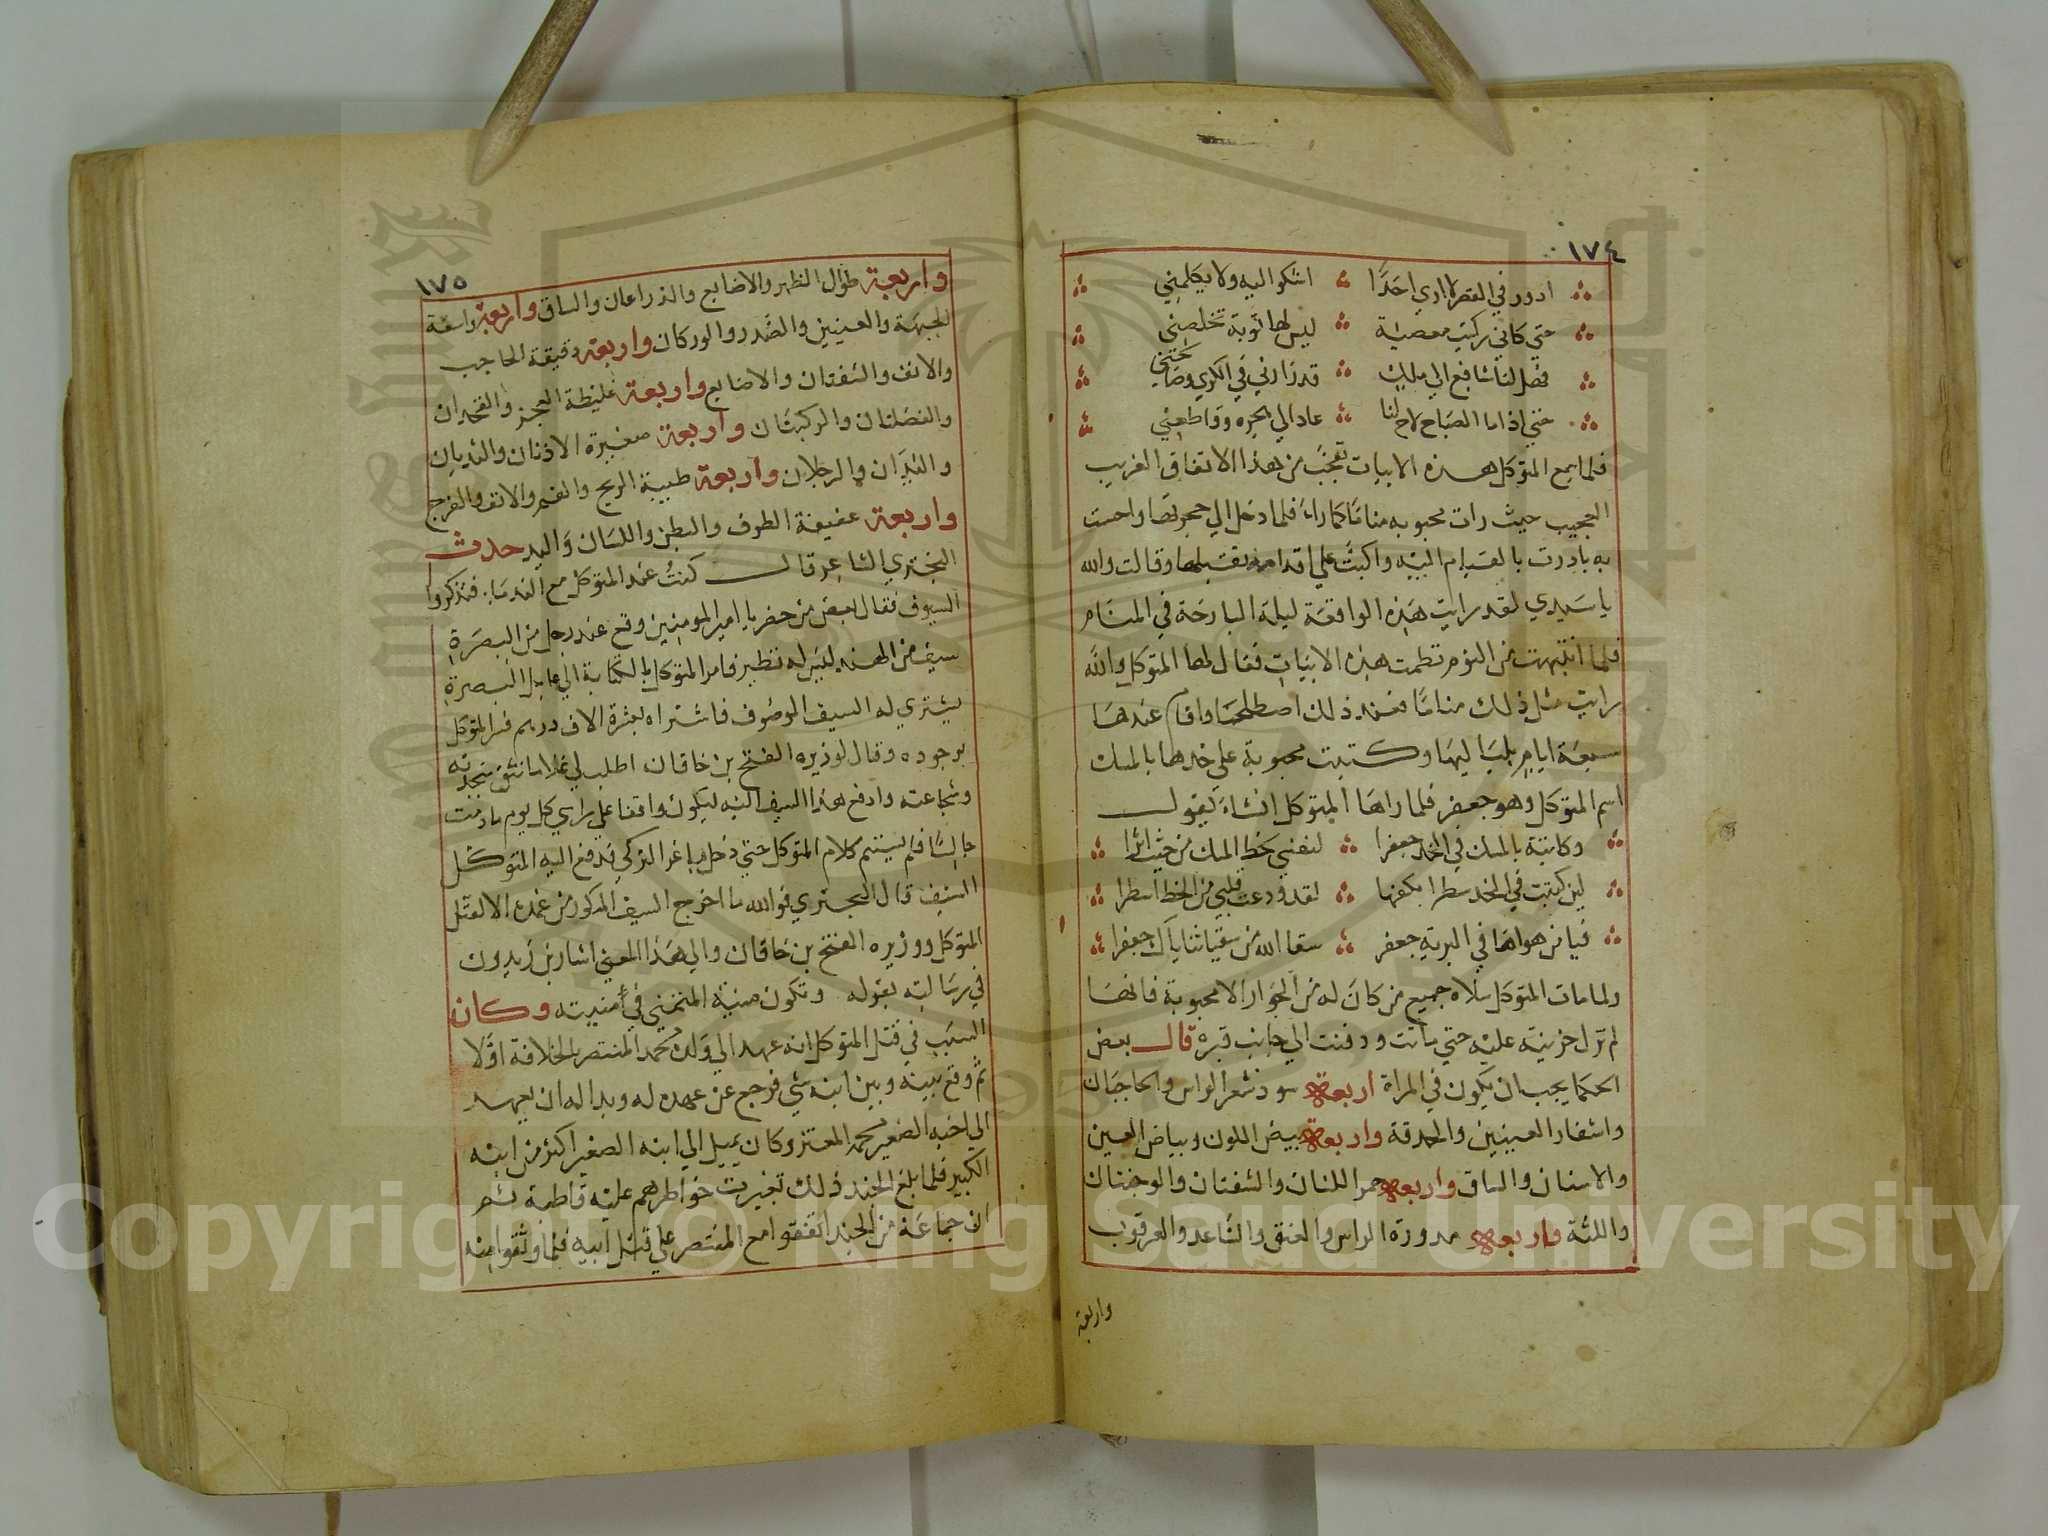 ١٧٤
ادور في القصر لا اري احدًا اشكو اليه ولا يكلمني
حتي كاني ركبت معصية ليس لها توبة تخلصني
فهل لنا شافع الي ملك قد زارني في الكري وصالحني
حتي اذا ما الصباح لاح لنا عاد الي هجره وقاطعني
فلما سمع المتوكل هذه الابيات تعجب من هذا الاتفاق الغريب
العجيب حيث رات محبوبه مناما كما راه فلما دخل الي حجرتها واحست
به بادرت بالقيام اليه واكبت علي اقدامه تقبلها وقالت والله
يا سيدي لقد رايت هذه الواقعة ليلة البارحة في المنام
فلما انتبهت من النوم نظمت هذه الابيات فقال لها المتوكل والله
رايت مثل ذلك مناما فعند ذلك اصطلحا واقام عندها
سبعة ايام بلياليها وكتبت محبوبة علي خدها بالمسك
اسم المتوكل وهو جعفر فلما راها المتوكل انشاء يقول
وكاتبة بالمسك في الخد جعفرا لنفسي بخط المسك من حيث اثرا
لين كتبت في الخد سطرا بكفها لقد اودعت قلبي من الخط اسطرا
فيا من هواها في البرية جعفر سقا الله من سقيا ثناياك جعفرا
ولما مات المتوكل سلاه جميع من كان له من الجوار الا محبوبة فانها
لم تزل حزينة عليه حتي ماتت ودفنت الي جانب قبره قال بعض
الحكما يجب ان يكون في المراة اربعة سود شعر الراس والحاجبان
واشفار العينين والحدقة واربعة بيض اللون وبياض العين
والاسنان والساق واربعة حمر اللسان والشفتان والوجنتان
واللثة واربعة مدورة الراس والعنق والساعد والعرقوب
واربعة
١٧٥
واربعة طوال الظهر والاصابع والذراعان والساق واربعة واسعة
الجبهة والعينين والصدر والوركان واربعة دقيقة الحاجب
والانف والشفتان والاصابع واربعة غليظة العجز والفخدان
والعضلتان والركبتان واربعة صغيرة الاذنان والثديان
واليدان والرجلان واربعة طيبة الريح والفم والانف والفرج
واربعة عفيفة الطرف والبطن واللسان واليد حدث
البختري الشاعر قال كنت عند المتوكل مع الندما فتذكروا
السيوف فقال بعض من حضر يا امير المومنين وقع عند رجل من البصرة
سيف من الهند ليس له نظير فامر المتوكل بالكتابة الي عامل البصرة
يشتري له السيف الموصوف فاشتراه بعشرة الاف درهم فسر المتوكل
بوجوده وقال لوذيره الفتح بن خاقان اطلب لي غلاما نثق بنجدته
وشجاعته وادفع هذا السيف اليه ليكون واقفا علي راسي كل يوم ما دمت
جالسا فلم يستتم كلام المتوكل حتي دخل باغر التركي فدفع اليه المتوكل
السيف قال البختري فوالله ما اخرج السيف المذكور من غمده الا لقتل
المتوكل ووزيره الفتح بن خاقان والي هذا المعني اشار بن زيدون
في رسالته بقوله وتكون منية المتمني في امنيته وكان
السبب في قتل المتوكل انه عهد الي ولده محمد المنتصر بالخلافة اولا
ثم وقع بينه وبين ابنه شي فرجع عن عهده له وبدا له ان يعهد
الي اخيه الصغير محمد المعتز وكان يميل الي ابنه الصغير اكثر من ابنه
الكبير فلما بلغ الجند ذلك تغيرت خواطرهم عليه قاطبة ثم
ان جماعة من الجند اتفقوا مع المنتصر علي قتل ابيه فلما وثقوا منه
Copyright © King Saud University